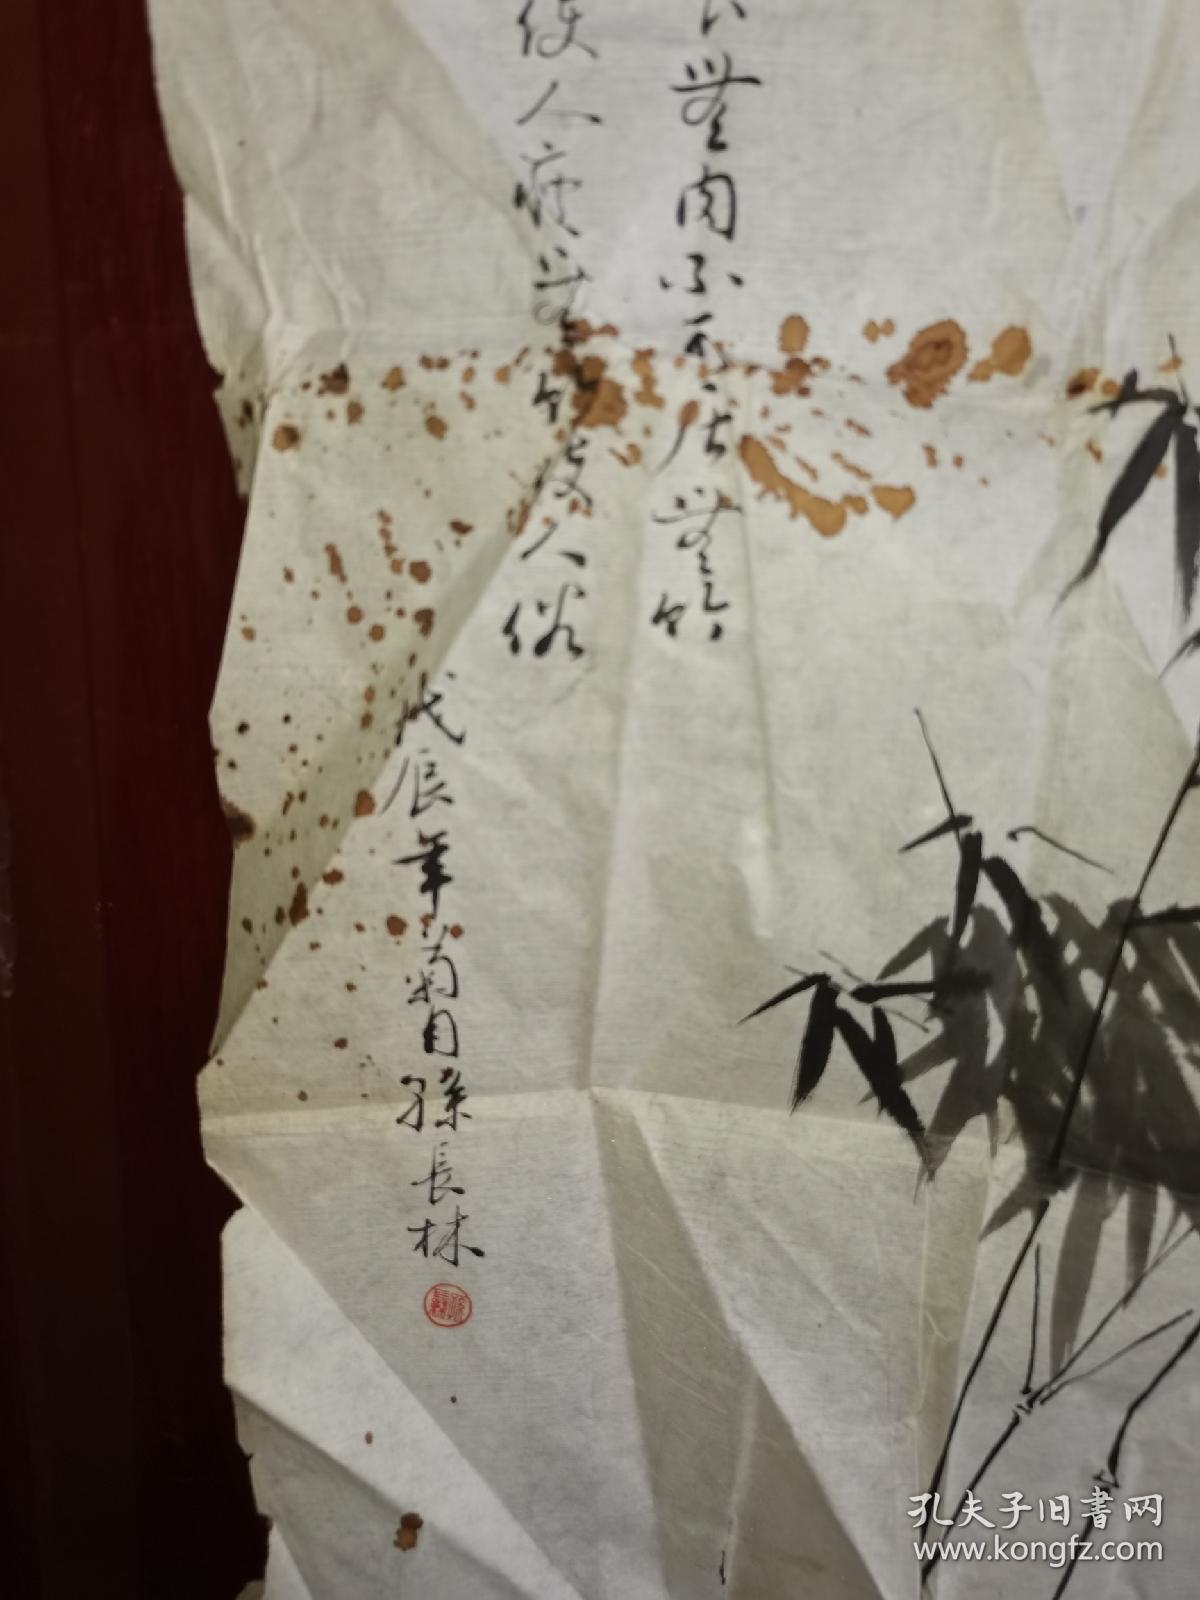 無肉不可居無竹
使人瘦無竹使人俗
戊辰年菊月孫長林
孔夫子旧書网
www.kongfz.com